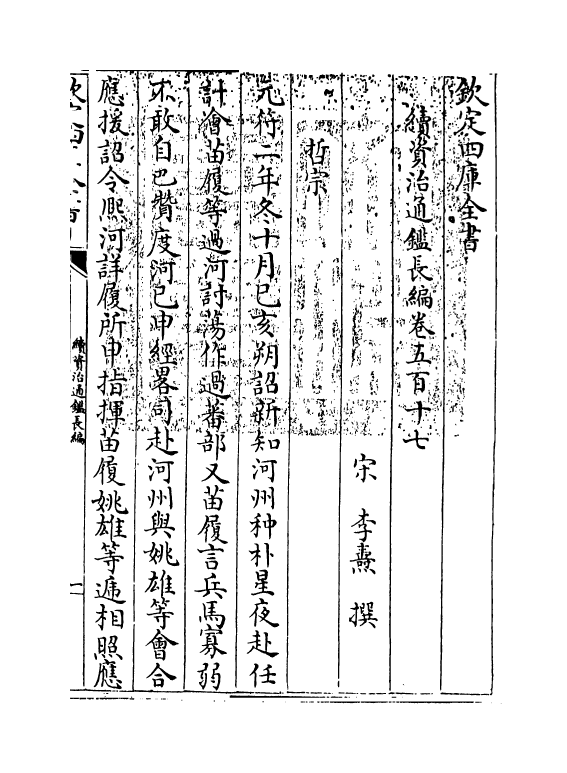 欽定四庫全書
續資治通鑑長編卷五百十七
宋 李燾 撰
哲宗
元符二年冬十月己亥朔詔新知河州种朴星夜赴任
計會苗履等過河討蕩作過蕃部又苗履言兵馬寡弱
不敢自巴贊度河已申經畧司赴河州與姚雄等會合
應援詔令熈河詳履所申指揮苗履姚雄等遞相照應
欽定四庫全書
續資治通鑑長編
一